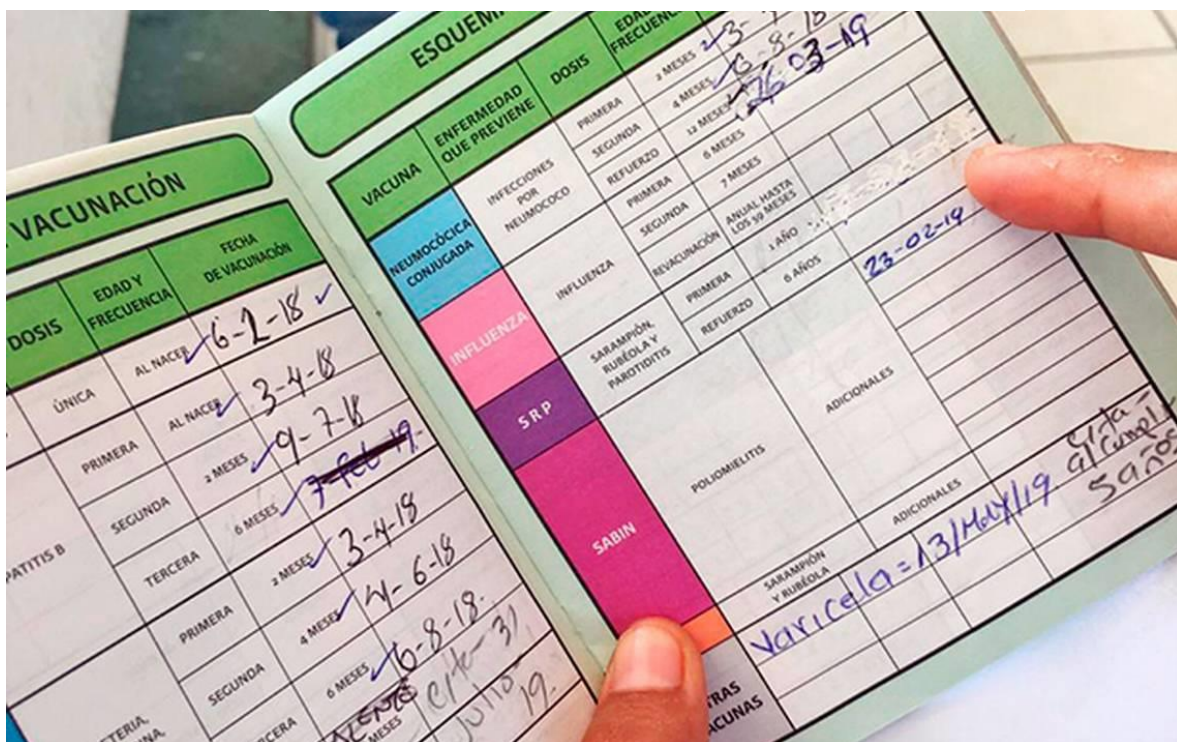 VACUNACIÓN
DOSIS
EDAD Y FRECUENCIA
FECHA DE VACUNACIÓN
ÚNICA
AL NACER
6-2-18
PATITIS B
PRIMERA
AL NACER
3-4-18
SEGUNDA
2 MESES
9-7-18
TERCERA
6 MESES
7 Feb 19
PRIMERA
2 MESES
3-4-18
SEGUNDA
4 MESES
4-6-18
TERIA,
CERA
6 MESES
6-8-18
MESES
cita-31
Julio
19
ESQUEMA
VACUNA
ENFERMEDAD QUE PREVIENE
DOSIS
EDAD
FRECUENCIA
NEUMOCÓCICA CONJUGADA
INFECCIONES POR NEUMOCOCO
PRIMERA
2 MESES
SEGUNDA
4 MESES
6-8-18
REFUERZO
12 MESES
26-03-19
INFLUENZA
INFLUENZA
PRIMERA
6 MESES
SEGUNDA
7 MESES
REVACUNACIÓN
ANUAL HASTA LOS 59 MESES
S R P
SARAMPIÓN, RUBÉOLA Y PAROTIDITIS
PRIMERA
1 AÑO
REFUERZO
6 AÑOS
23-02-19
SABIN
POLIOMIELITIS
ADICIONALES
SARAMPIÓN Y RUBÉOLA
ADICIONALES
cita-
a/cumpl
5 años
TRAS
ACUNAS
Varicela=13/MAY/19